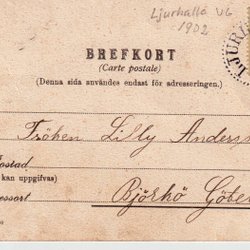 Ljurhalla VG
1902
LJUR
BREFKORT
(Carte postale)
(Denna sida användes endast för adresseringen.)
Fröken Lilly Anders
ostad
kan uppgifvas)
essort
Björkö Göte